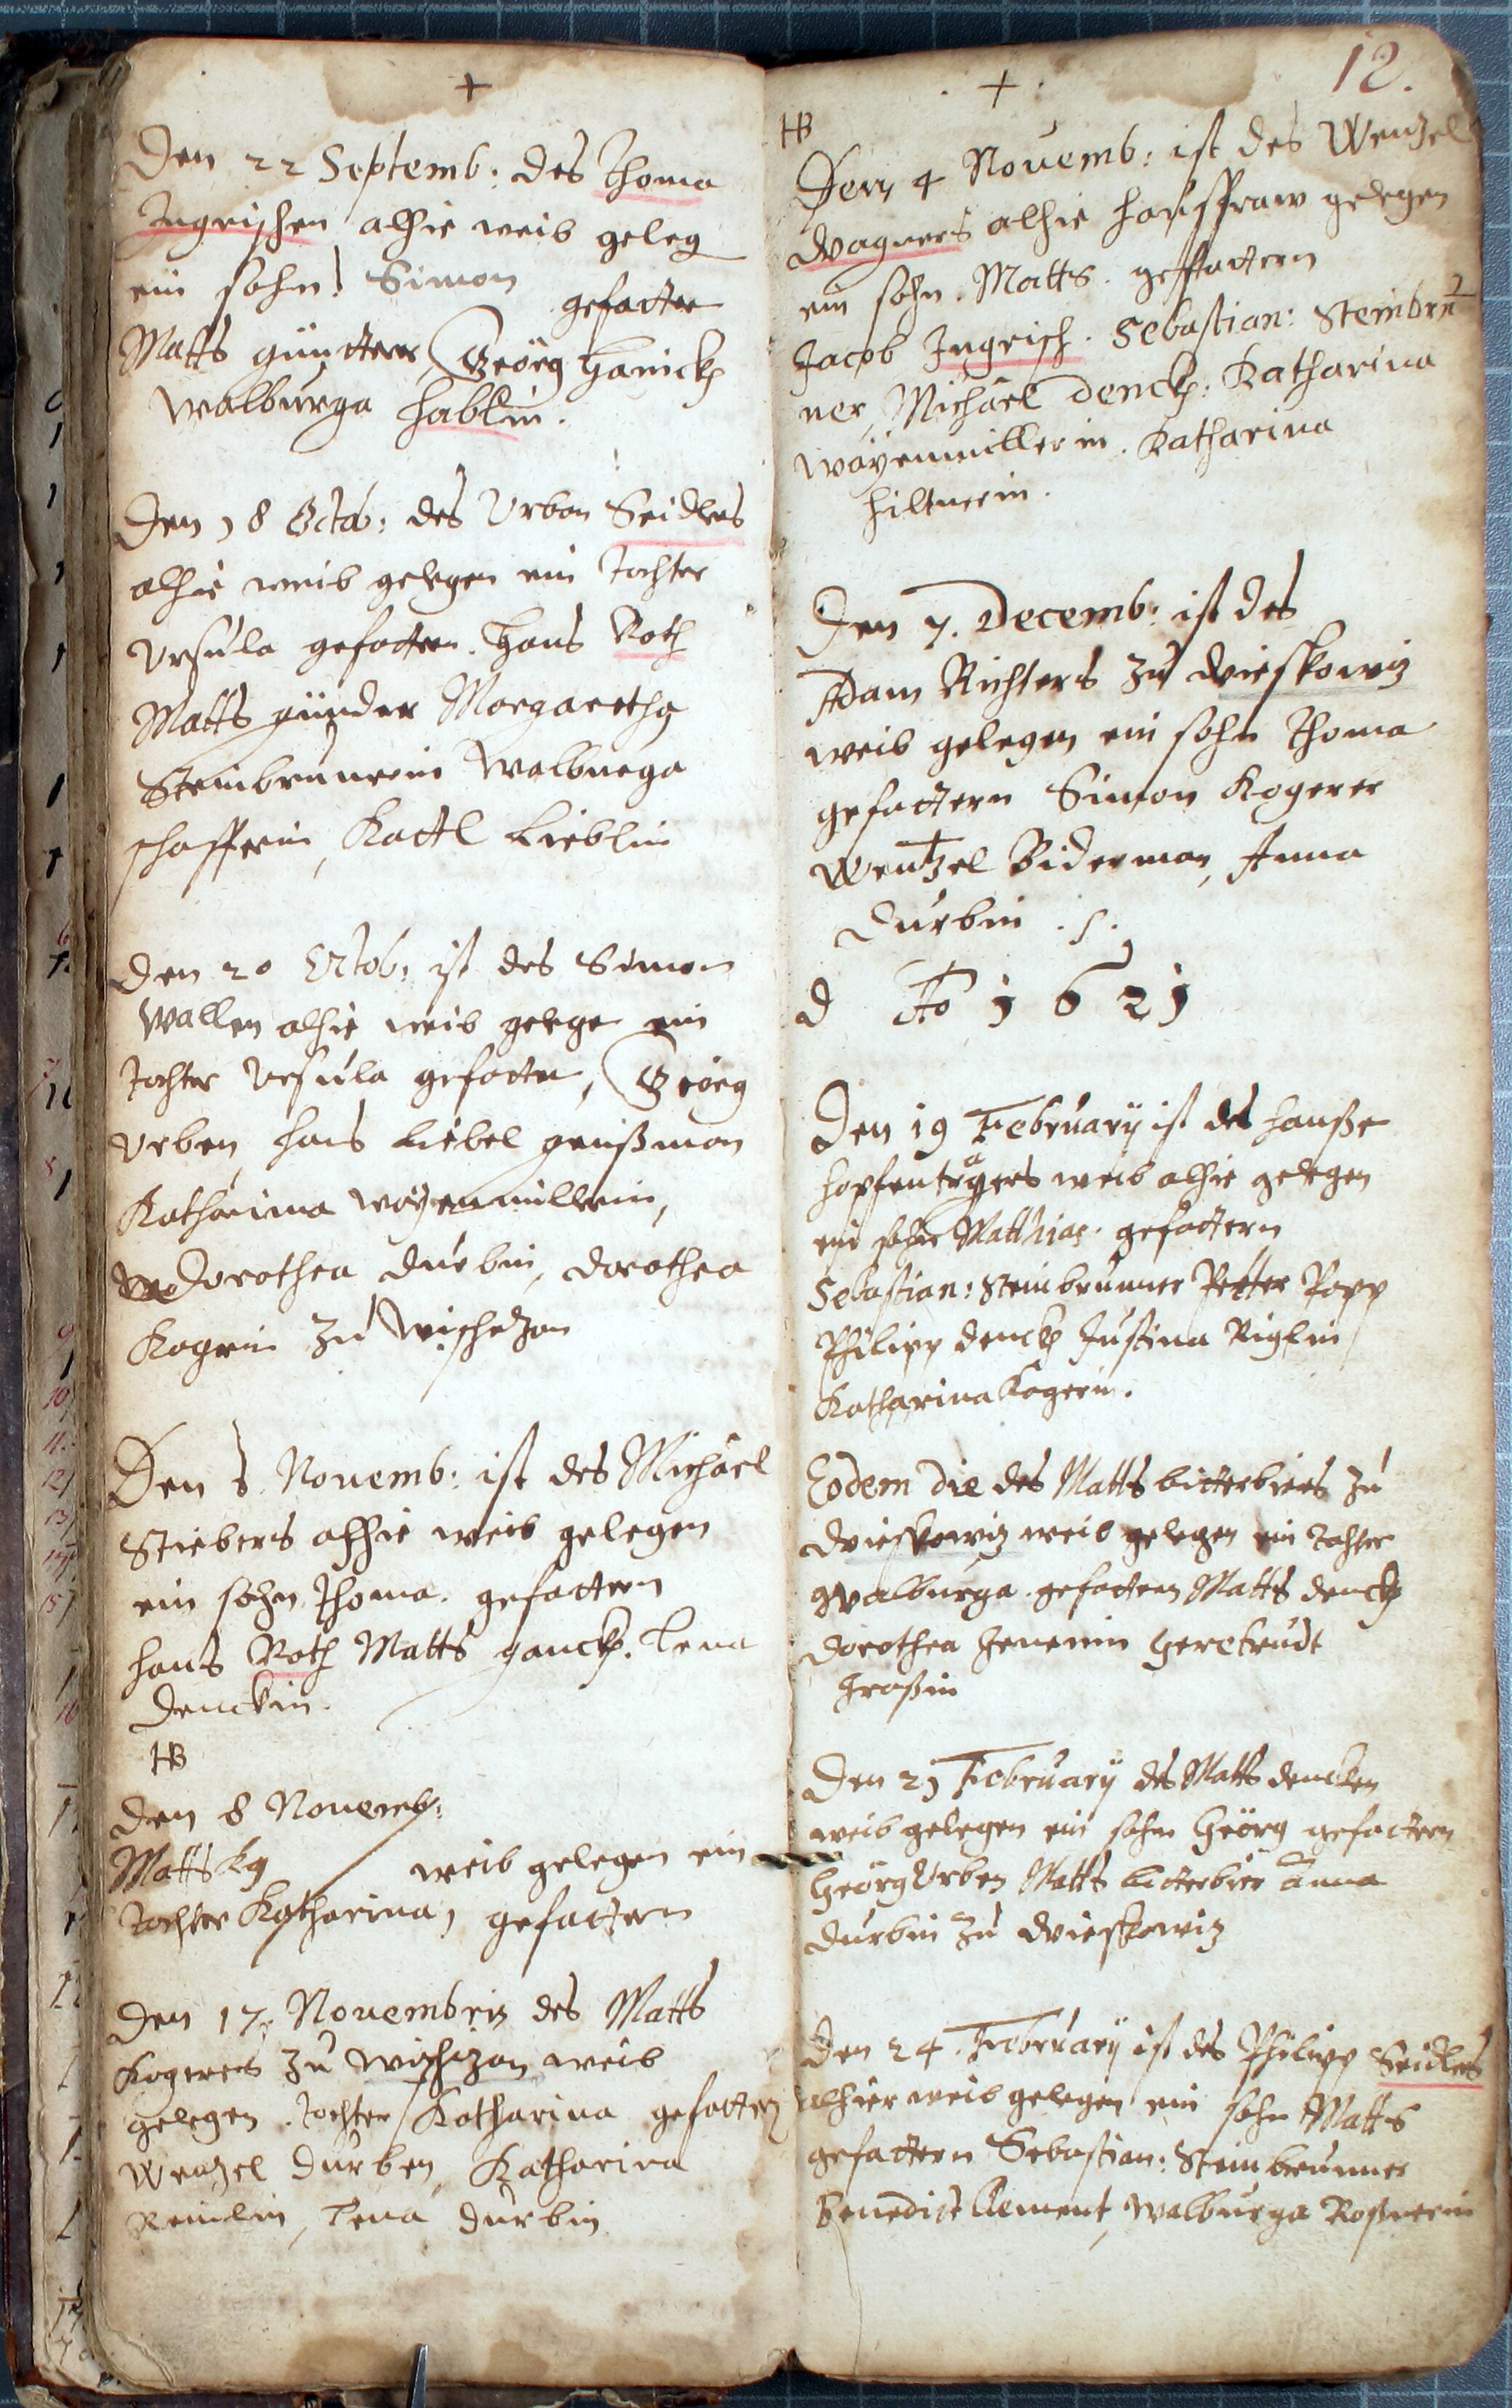 +
Den 22 Septemb: des Thoma
Ingrischen alhie weib geleg
ein sohn Simon gefatter
Matts güntter, Geörg Hanickh
Walburga Hablin.
Den 18 Octob: des Urban Seidlers
alhie weib gelegen ein Tochter
Ursula gefattern. Hans Roth
Matts günder Margaretha
Steinbrunnerin Walburga
schafferin, Kattl Lieblin
Den 20 Octob: ist des Simon
Wallen alhie weib gelege ein
Tochter Ursula gefatter, Geörg
Urben, Hans Liebel
Katharina Woyenmüllerin,
Dorothea Durbin, Dorothea
Kogrin zu Wischezan
Den 5 Novemb: ist des Michael
Stiebers alhie weib gelegen
ein sohn Thoma. gefattern
Hans Roth Matts Lena
Denckin.
HB
Den 8 Novemb:
Matts Kg weib gelegen ein
Tochter Katharina, gefattern
Den 17. Novembris des Matts
Kogerers zu Wischezan weib
gelegen. Tochter Katharina gefattern
Wentzel Durben, Katharina
Reinlin, Lena Durbin
12.
+
HB
Den 4 Novemb: ist des Wentzel
Wagners alhie hausfraw gelegen
ein sohn. Matts. geffattern
Jacob Ingrisch. Sebastian: Steinbru
ner, Michael Denckh. Katharina
Woÿenmillerin. Katharina
Hiltnerin.
Den 7. Decemb: ist des
Adam Richters zu Wieskowitz
weib gelegen ein sohn Thoma
gefattern Simon Kogerer
Wentzel Biderman, Anna
Durbin .s.
d Ao 1621
Den 19 February ist des Hanße
Hopfentragers weib alhie gelegen
ein sohn Matthias. gefattern
Sebastian: Steinbrunner Petter Popp
Philipp Denckh Justina Riglin
Katharina Kogerin.
Eodem die des Matts Bitterbiers zu
Wieskowitz weib gelegen ein Tochter
Walburga. gefattern Matts Denckh
Dorothea Gerdtrudt
Den 21 February des Matts Dencken
weib gelegen ein sohn Geörg gefattern
Geörg Urben Matts Bitterbier Anna
Durbin zu Wieskowitz
Den 24. February ist des Philipp Seidlers
alhier weib gelegen ein sohn Matts
gefattern Sebastian: Steinbrunner
Benedict Clement, Walburga Roßnerin